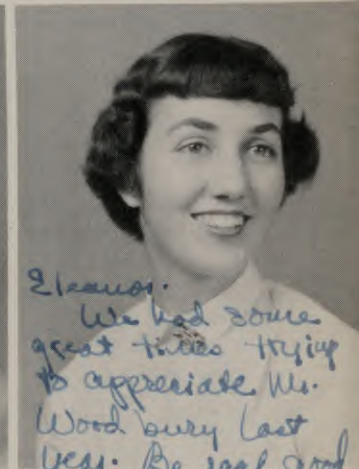 Eleanor.
We had some
great times trying
to appreciate Mr.
Woodbury last
year. Be real good